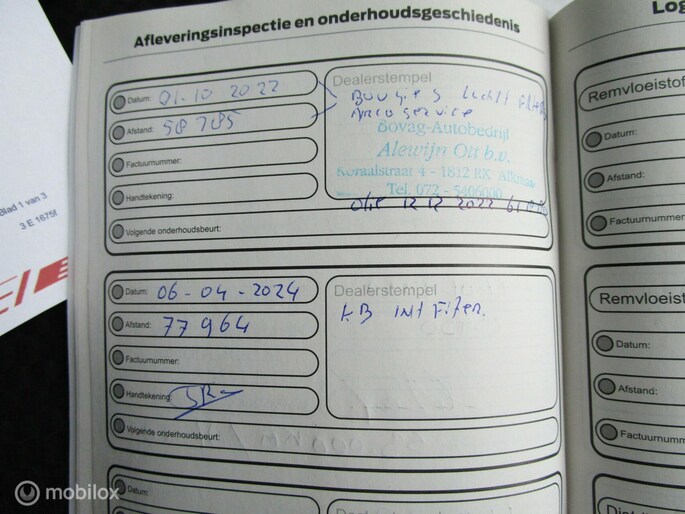 Afleveringsinspectie en onderhoudsgeschiedenis
Datum: 01.10 2022
Afstand: 58785
Factuurnummer:
Handtekening:
Volgende onderhoudsbeurt:
Dealerstempel
Bougies Lucht
Airco service
Bovag-Autobedrijf
Alewijn Ott b.v.
Koraalstraat 4 - 1812 RK Alkmaar
Tel. 072 - 5406000
Olie 12 12 2022
Datum: 06-04-2024
Afstand: 77964
Factuurnummer:
Handtekening:
Volgende onderhoudsbeurt:
Dealerstempel
Datum:
Afstand:
Log
Remvloeistof
Datum:
Afstand:
Factuurnummer
Remvloeist
Datum:
Afstand:
Factuurnummer
Blad 1 van 3
3 E 1675
mobilox